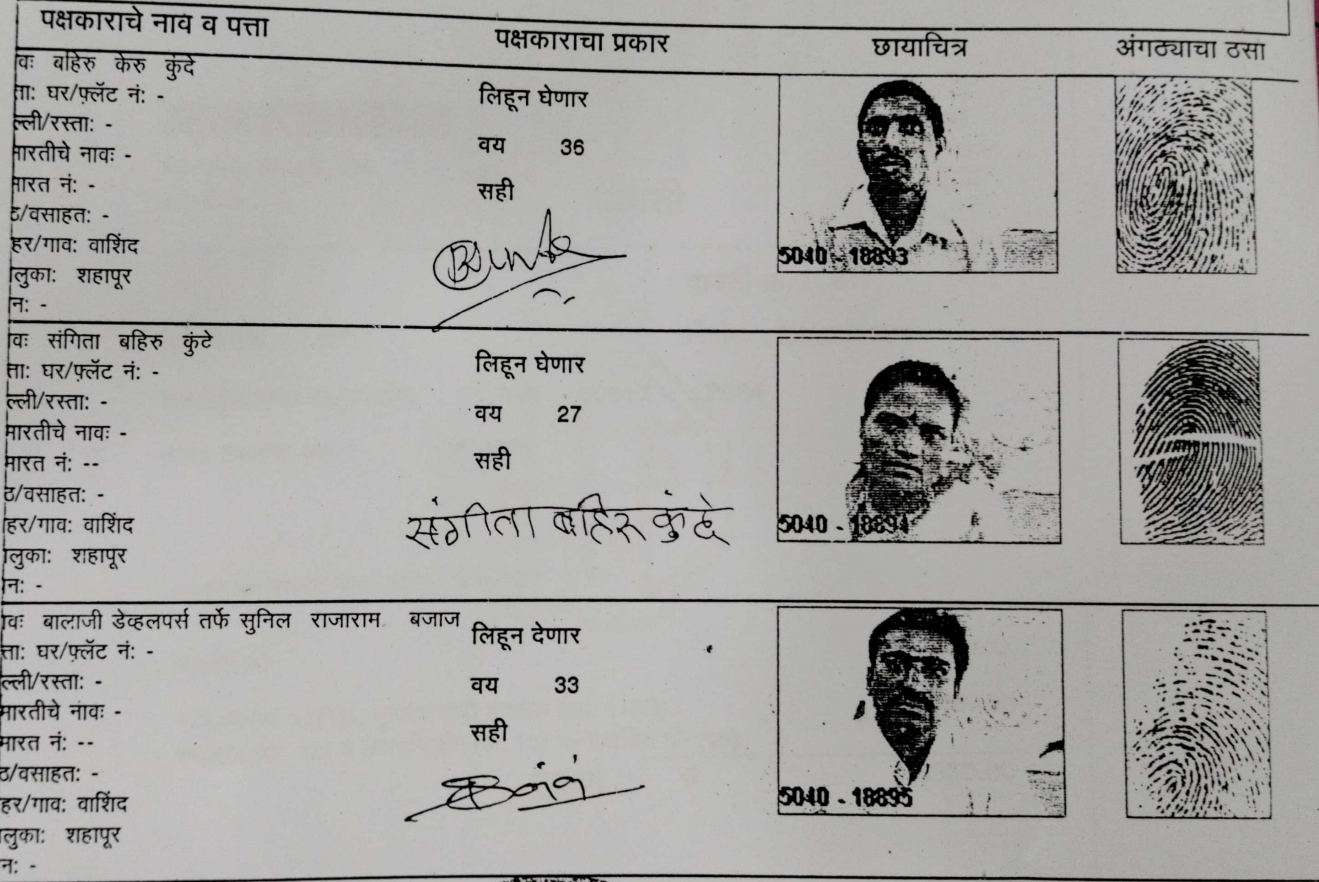 पक्षकाराचे नाव व पत्ता पक्षकाराचा प्रकार छायाचित्र अंगठ्याचा ठसा
वः बहिरु केरु कुंदे
ताः घर/फ़्लॅट नं: -
ल्ली/रस्ता: -
मारतीचे नावः -
मारत नं: -
ठ/वसाहत: -
हर/गाव: वाशिंद
लुका: शहापूर
न: -
लिहून घेणार
वय 36
सही
5040 - 18893
वः संगिता बहिरु कुंटे
ता: घर/फ़्लॅट नं: -
ल्ली/रस्ता: -
मारतीचे नावः -
मारत नं: --
ठ/वसाहत: -
हर/गाव: वाशिंद
लुका: शहापूर
न: -
लिहून घेणार
वय 27
सही
संगीता बहिरु कुंदे
5040 - 18894
वः बालाजी डेव्हलपर्स तर्फे सुनिल राजाराम बजाज
ता: घर/फ़्लॅट नं: -
ल्ली/रस्ता: -
मारतीचे नावः -
मारत नं: --
ठ/वसाहत: -
हर/गाव: वाशिंद
लुका: शहापूर
न: -
लिहून देणार
वय 33
सही
5040 - 18895